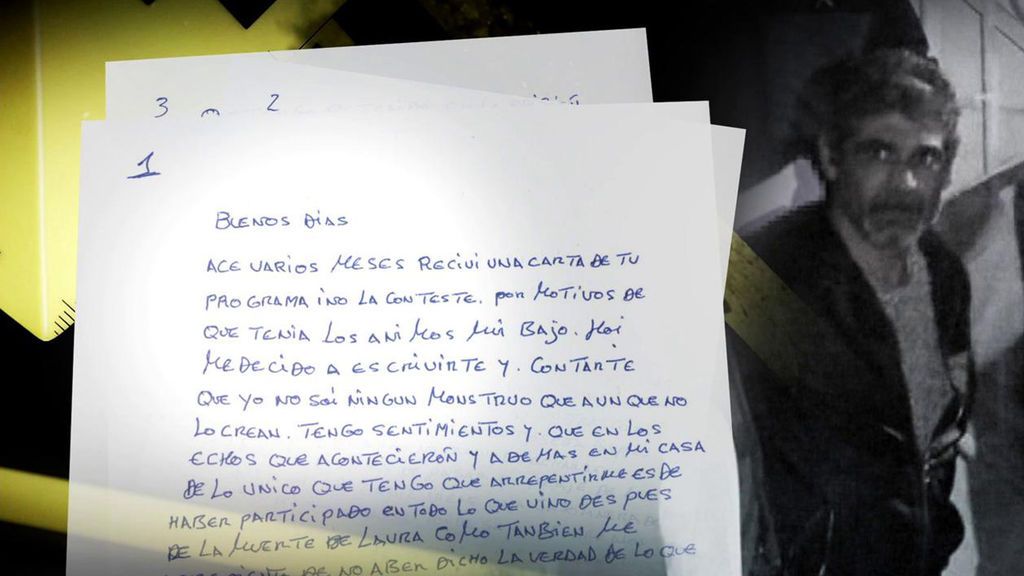 3 2
1
BUENOS DIAS
ACE VARIOS MESES RECIVI UNA CARTA DE TU
PROGRAMA INO LA CONTESTE. POR MOTIVOS DE
QUE TENIA LOS ANIMOS MUI BAJO. HOI
ME DECIDO A ESCRIVIRTE Y. CONTARTE
QUE YO NO SOI NINGUN MONSTRUO QUE AUN QUE NO
LO CREAN. TENGO SENTIMIENTOS Y. QUE EN LOS
ECHOS QUE ACONTECIERON Y ADEMAS EN MI CASA
DE LO UNICO QUE TENGO QUE ARREPENTIRME ES DE
HABER PARTICIPADO EN TODO LO QUE VINO DES PUES
DE LA MUERTE DE LAURA COMO TANBIEN ME
DE NO ABER DICHO LA VERDAD DE LO QUE